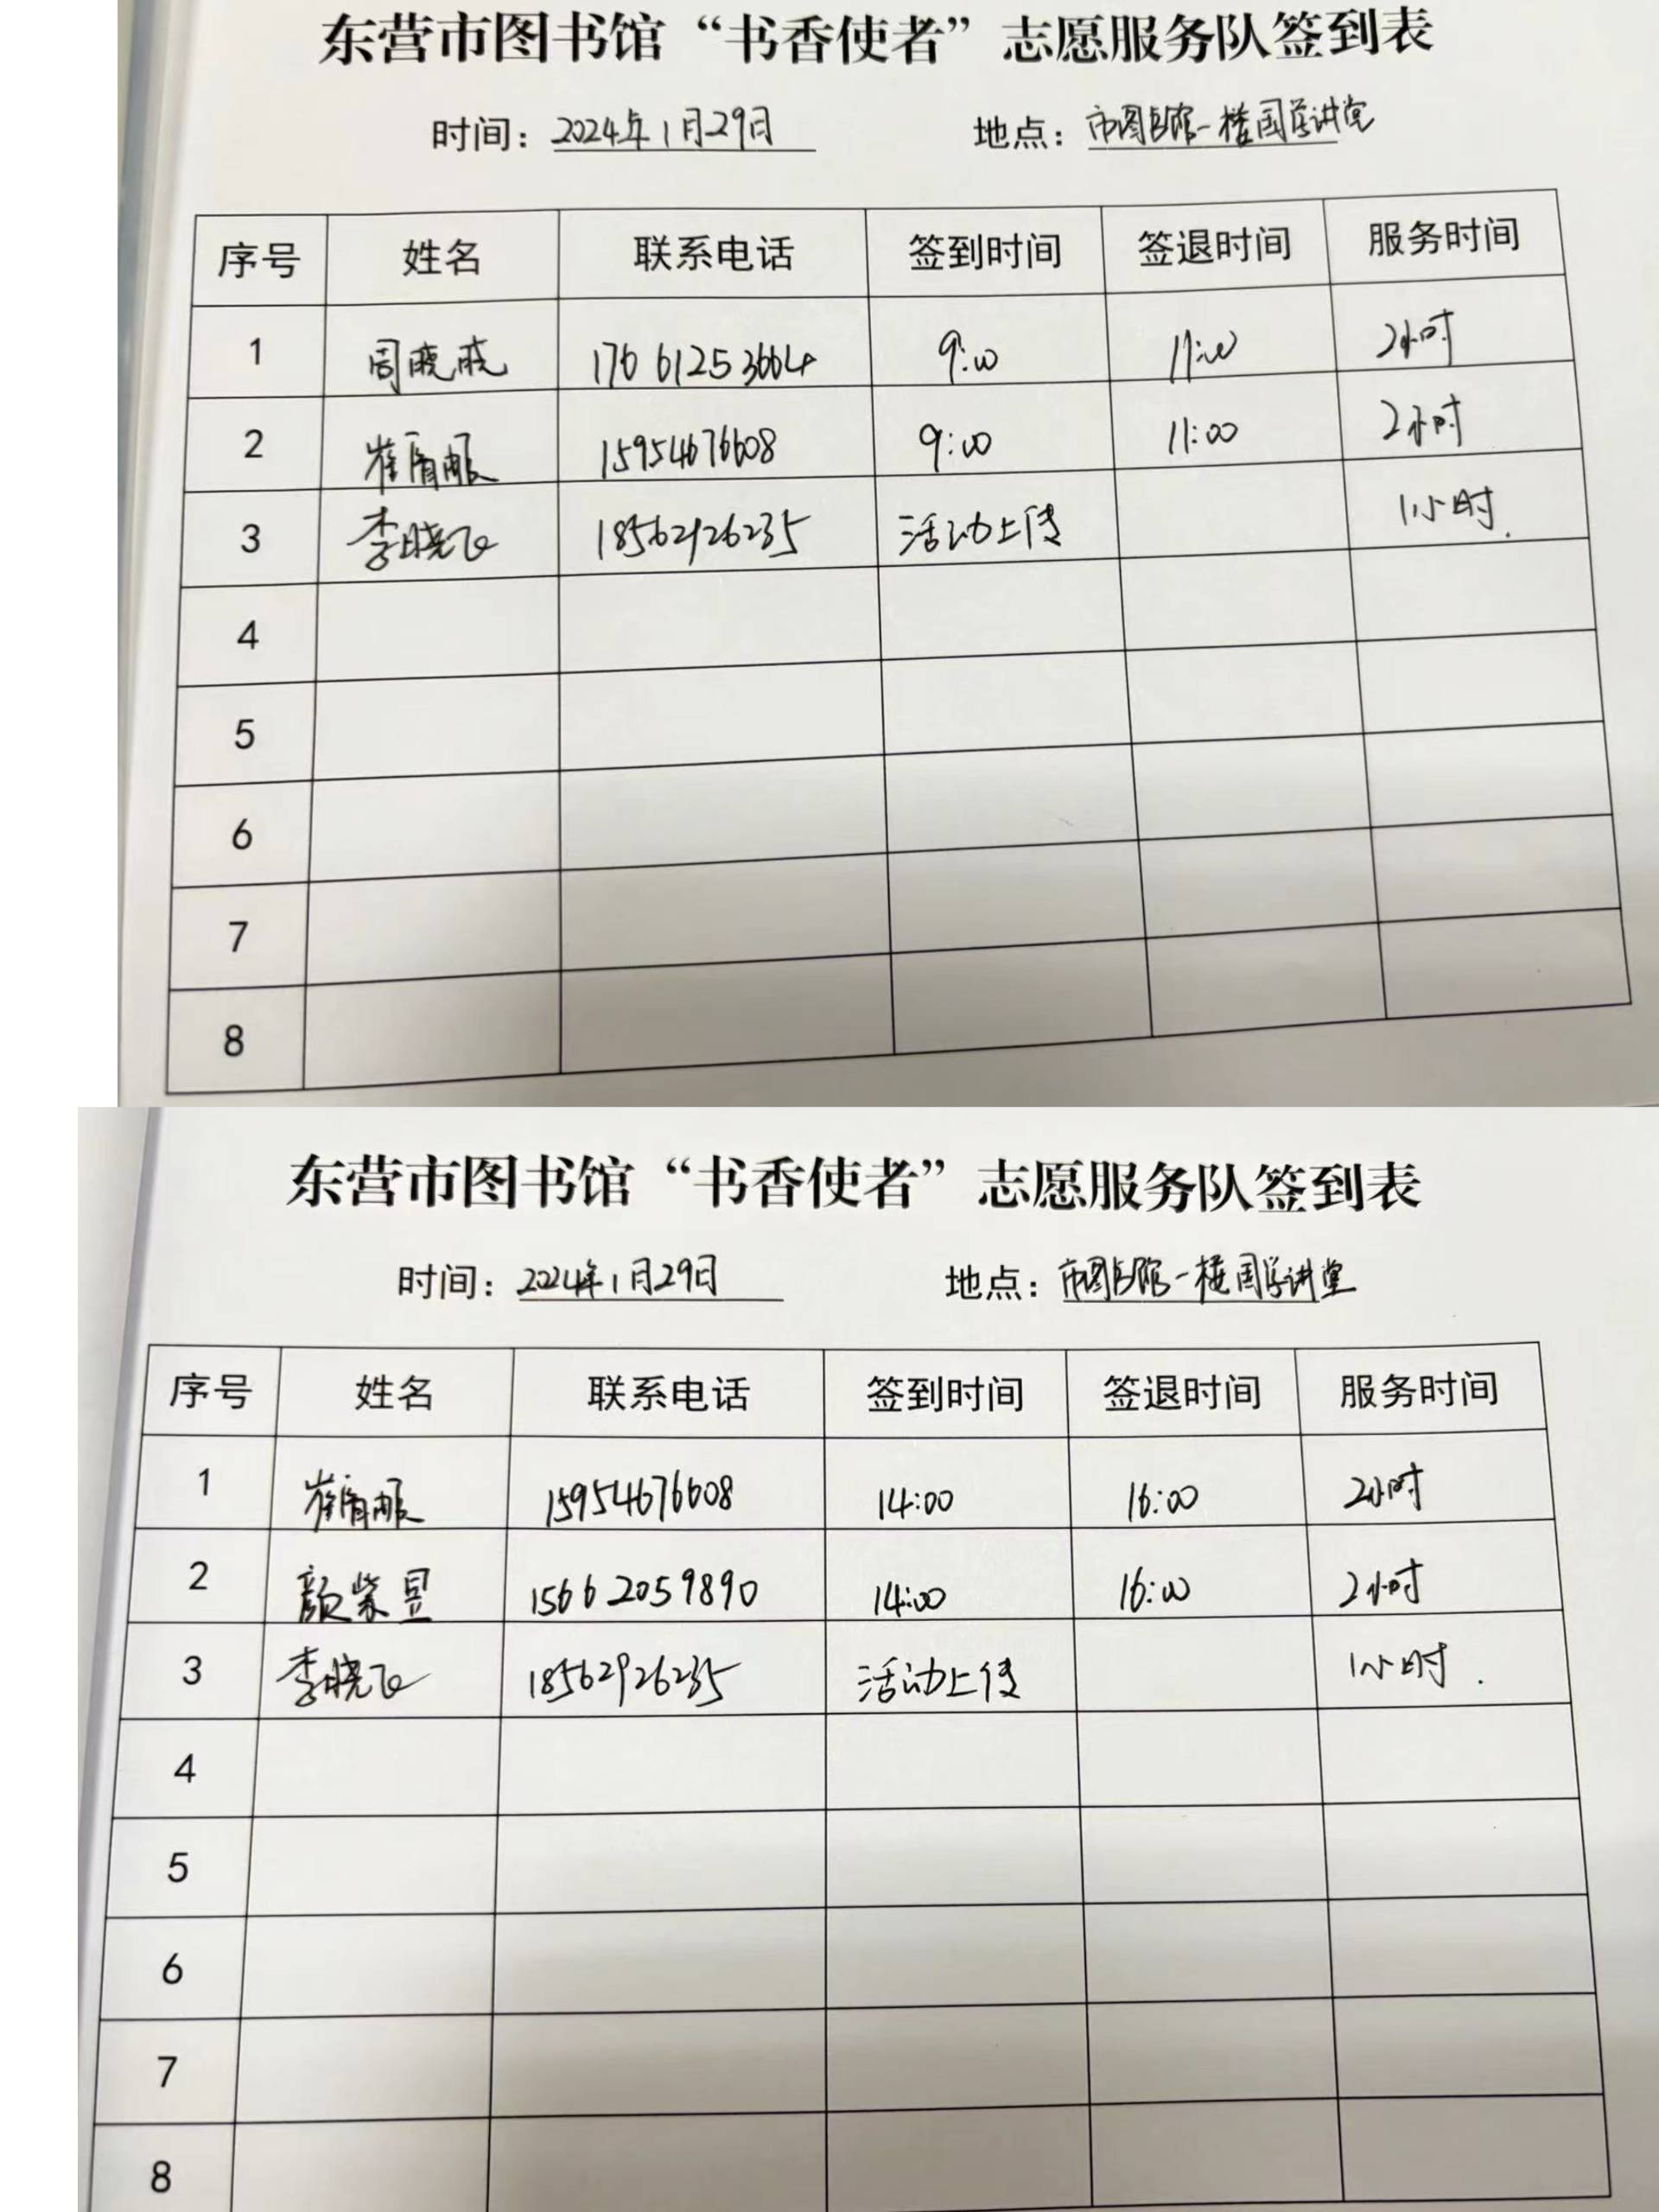 东营市图书馆“书香使者”志愿服务队签到表
时间：2024年1月29日 地点：市图书馆一楼国学讲堂
序号 姓名 联系电话 签到时间 签退时间 服务时间
1 周晓晓 17661253664 9:00 11:00 2小时
2 崔 15954676608 9:00 11:00 2小时
3 李晓飞 18562926235 活动上传 1小时.
4
5
6
7
8
东营市图书馆“书香使者”志愿服务队签到表
时间：2024年1月29日 地点：市图书馆一楼国学讲堂
序号 姓名 联系电话 签到时间 签退时间 服务时间
1 崔 15954676608 14:00 16:00 2小时
2 颜紫昱 15662059890 14:00 16:00 2小时
3 李晓飞 18562926235 活动上传 1小时.
4
5
6
7
8